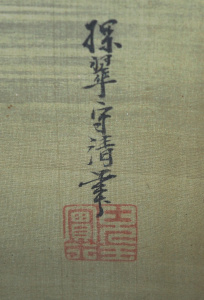 探翠守清筆